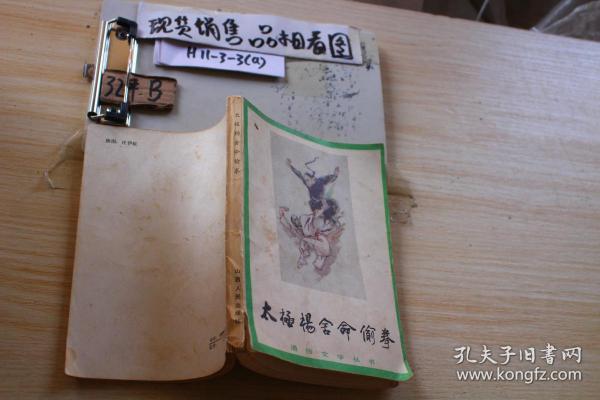 现货销售 品相看图
H11-3-3(a)
32开B
太极杨舍命偷拳
山西人民出版社
太極楊舍命偷拳
通俗文学丛书
孔夫子旧书网
www.kongfz.com